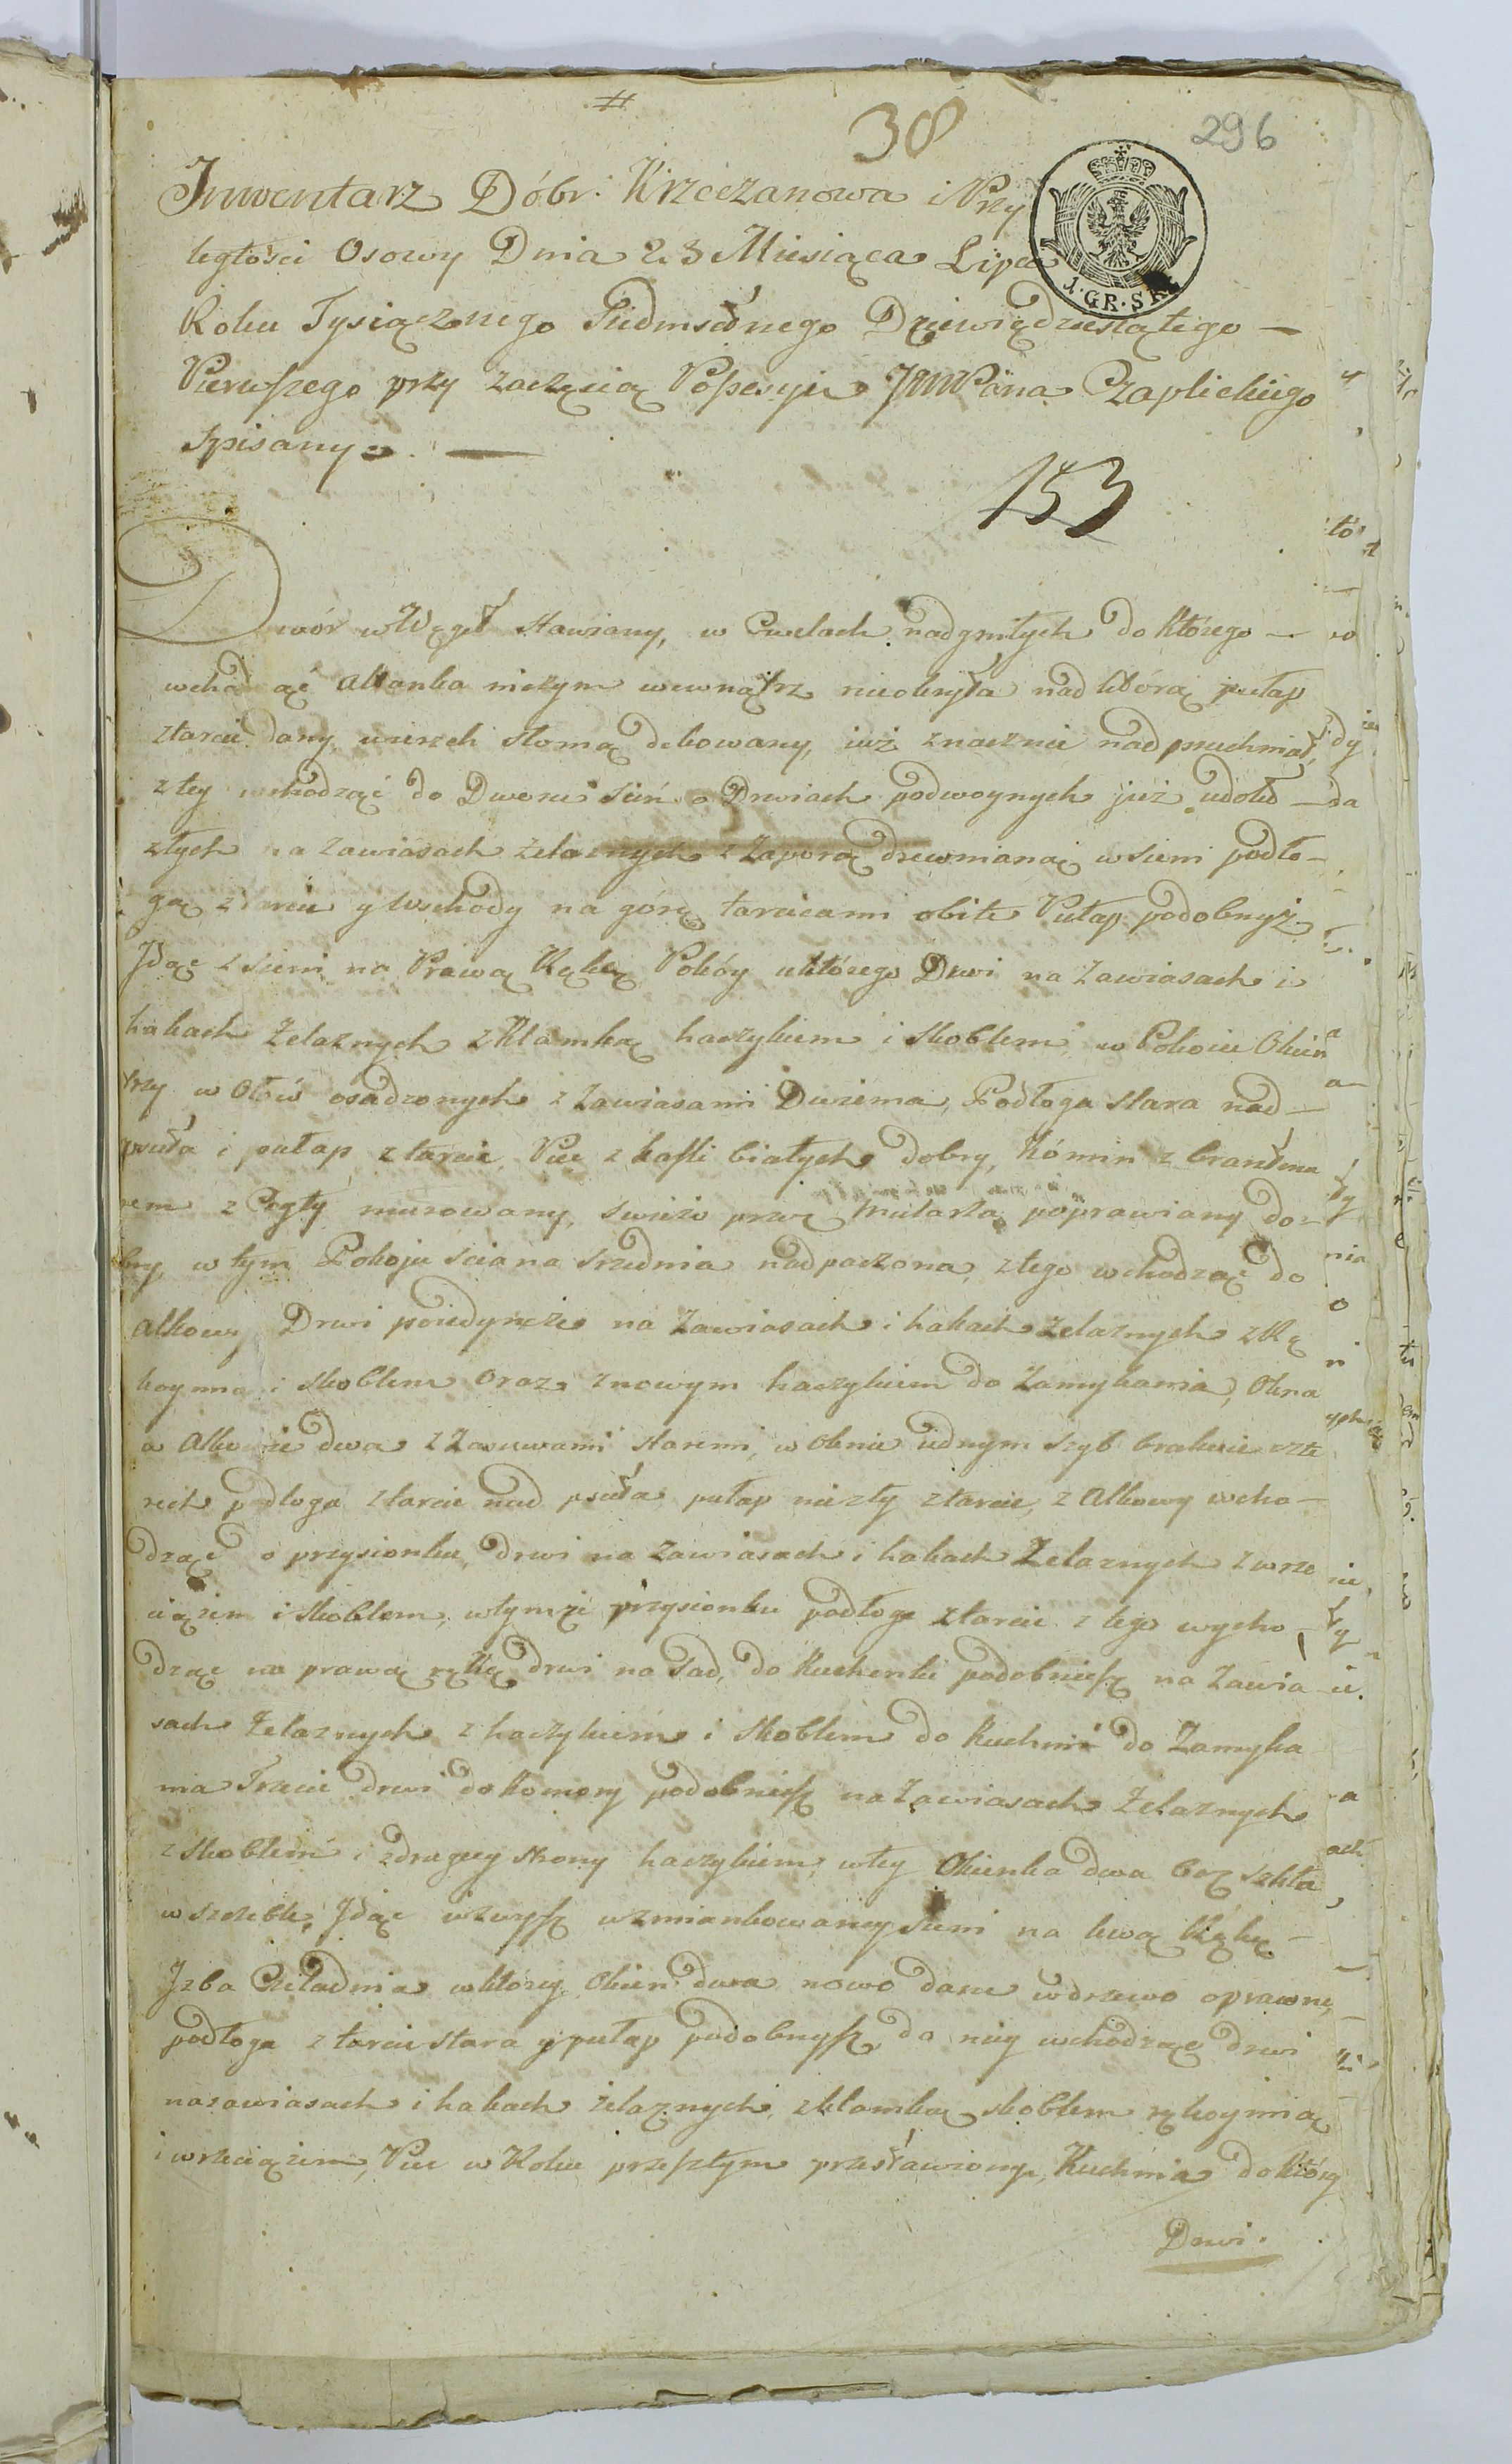 #
38
296
Inwentarz Dóbr Krzeczanowa i Przy
ległości Osowy Dnia 23 Miesiąca Lipca
1. GR. SR.
Roku Tysiącznego Siedmsetnego Dziewiędziesiątego —
Pierwszego przy zaczęcią Possesyi JMWPana Czaplickiego
Spisany. —
153
Dwór w Węgeł stawiany, w Cwelach nadgniłych do którego —
wchodząć Altanka niczym wewnątrz nieobryta nad którą pułap
ztarcic dany, wierzch słomą dekowany, iuż znacznie nadpruchniał,
z tey wchodząć do Dworu sień o Drwiach podwoynych już udołu
złych na zawiasach żelaznych z Zaporą drewnianą w sieni podło-
gą z tarcic y Wschody na górę tarcicami obite Pułap podobnyż
Idąc z sieni na Prawą Rękę Pokóy uktórego Drwi na Zawiasach i
hakach Żelaznych z Klamką haczykiem i skoblem, w Pokoiu Okien
trzy w Ołów osadzonych z Zawiasami Dwiema, Podłoga stara nad—
psuta i pułap z tarcic Piec z kafli białych dobry, Kómin z
rem z Cegły murowany, świżo przez Mularza poprawiany do-
bry, w tym Pokoju sciana srzednia nadpaczona, z tego wchodząć do
alkowy Drwi poiedyncze na Zawiasach i hakach żelaznych z Rę
koymną i skoblem oraz z nowym haczykiem do Zamykania, Okna
w Alkowie dwa z Zasuwami staremi, w oknie iednym szyb brakuie czte
rech podłoga z tarcic nad psuta pułap niezły z tarcic, z Alkowy wcho—
dząć o przysionku drwi na zawiasach i hakach Żelaznych z wrze
ciążem i skoblem, wtymże przysionku podłoga z tarcic z tego wycho
dząc na prawą rękę drwi na Sad, do kuchenki podobnież na Zawia
sach Żelaznych z haczykiem i skoblem do kuchni do Zamyka
nia Trzecie drwi do komory podobnież na Zawiasach Żelaznych
z skoblem i z drugiey strony haczykiem, wtey Okienka dwa bez szkła
Idąc wzwyż wzmiankowaney sieni na lewą Rękę —
Izba Czeladnia w którey Okien dwa nowo dane w drzewo oprawne,
podłoga z tarcic stara y pułap podobnyż, do niey wchodząc drwi
nazawiasach i hakach żelaznych, z klamką skoblem rękoymią
i wrzeciążem, Piec w Roku przeszłym przestawiony, Kuchnia do którey
Drwi.